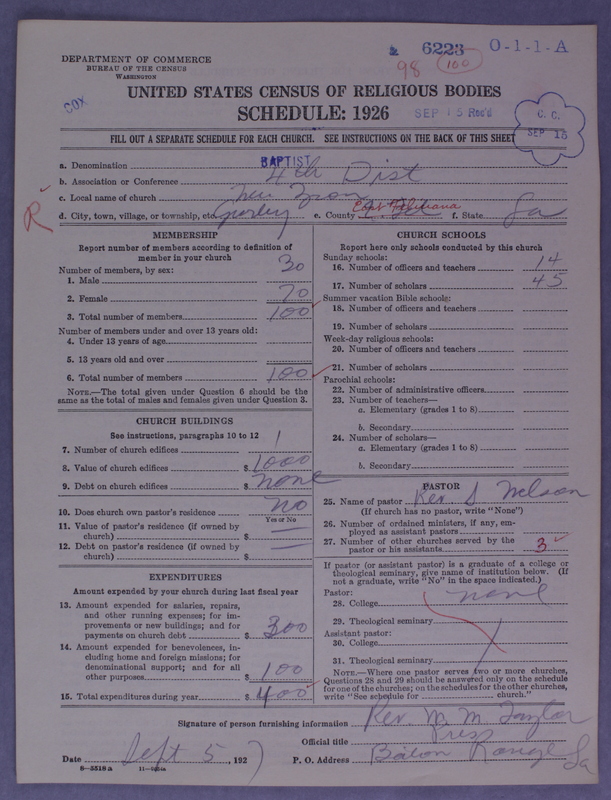 6223 O-1-1-A
98 (100)
DEPARTMENT OF COMMERCE
BUREAU OF THE CENSUS
WASHINGTON
COX
UNITED STATES CENSUS OF RELIGIOUS BODIES
SCHEDULE: 1926
SEP 15 Rec'd
C. C.
SEP 15
FILL OUT A SEPARATE SCHEDULE FOR EACH CHURCH. SEE INSTRUCTIONS ON THE BACK OF THIS SHEET
a. Denomination BAPTIST
b. Association or Conference 4th Dist
c. Local name of church New Zion
R
d. City, town, village, or township, etc. Gurley e. County East Feliciana f. State La
MEMBERSHIP
Report number of members according to definition of
member in your church
Number of members, by sex:
1. Male 30
2. Female 70
3. Total number of members 100
Number of members under and over 13 years old:
4. Under 13 years of age
5. 13 years old and over
6. Total number of members 100
NOTE.—The total given under Question 6 should be the
same as the total of males and females given under Question 3.
CHURCH BUILDINGS
See instructions, paragraphs 10 to 12
7. Number of church edifices 1
8. Value of church edifices $ 1000
9. Debt on church edifices $ none
10. Does church own pastor's residence? no
Yes or No
11. Value of pastor's residence (if owned by
church) $ —
12. Debt on pastor's residence (if owned by
church) $ —
EXPENDITURES
Amount expended by your church during last fiscal year
13. Amount expended for salaries, repairs,
and other running expenses; for im-
provements or new buildings; and for
payments on church debt $ 300
14. Amount expended for benevolences, in-
cluding home and foreign missions; for
denominational support; and for all
other purposes $ 100
15. Total expenditures during year $ 400
CHURCH SCHOOLS
Report here only schools conducted by this church
Sunday schools:
16. Number of officers and teachers 14
17. Number of scholars 45
Summer vacation Bible schools:
18. Number of officers and teachers
19. Number of scholars
Week-day religious schools:
20. Number of officers and teachers
21. Number of scholars
Parochial schools:
22. Number of administrative officers
23. Number of teachers—
a. Elementary (grades 1 to 8)
b. Secondary
24. Number of scholars—
a. Elementary (grades 1 to 8)
b. Secondary
PASTOR
25. Name of pastor Rev. S Nelson
(If church has no pastor, write "None")
26. Number of ordained ministers, if any, em-
ployed as assistant pastors
27. Number of other churches served by the
pastor or his assistants 3
If pastor (or assistant pastor) is a graduate of a college or
theological seminary, give name of institution below. (If
not a graduate, write "No" in the space indicated.)
Pastor:
28. College none
29. Theological seminary
Assistant pastor:
30. College
31. Theological seminary
NOTE.—Where one pastor serves two or more churches,
Questions 28 and 29 should be answered only on the schedule
for one of the churches; on the schedules for the other churches,
write "See schedule for church."
Signature of person furnishing information Rev. M. M. Taylor
Official title Pres
Date Sept 5, 1927 P. O. Address Baton Rouge La
8—5518a